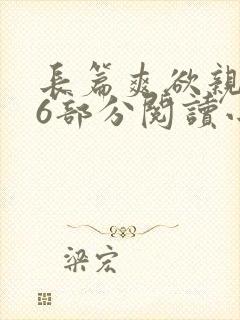 長篇爽欲親
6部分閱讀
梁宏